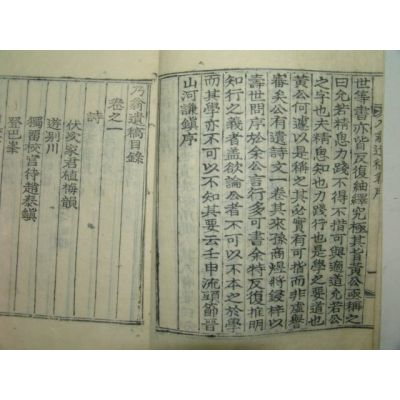 世等書亦皆反復紬繹究極其旨黃公亟稱之
曰允若精思力踐不得不措可與適道允若公
之字也夫精思知也力踐行也是學之要道也
黃公何遽以是稱之其必實有可指而非虛譽
審矣公有遺詩文一卷其來孫商焜將鋟梓以
壽世問序於余公言行多可書余特反復推明
知行之義者盖欲論公者不可以不本之於學
而其學亦不可以不知其要云壬申流頭節晉
山河謙鎭序
乃翁遺稿目錄
卷之一
詩
伏次家君植梅韻
遊別川
獨留校宮待趙泰鎭
登巴峯